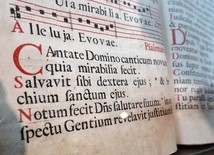 Uia mirabilia. Evovae.
Alleluja. Evovae.
Psalmus
Cantate Domino canticum nov
quia mirabilia fecit.
Salvavit sibi dextera ejus; & b
chium sanctum ejus.
Notum fecit Dñs salutare suum:
spectu Gentium revelavit justitiam